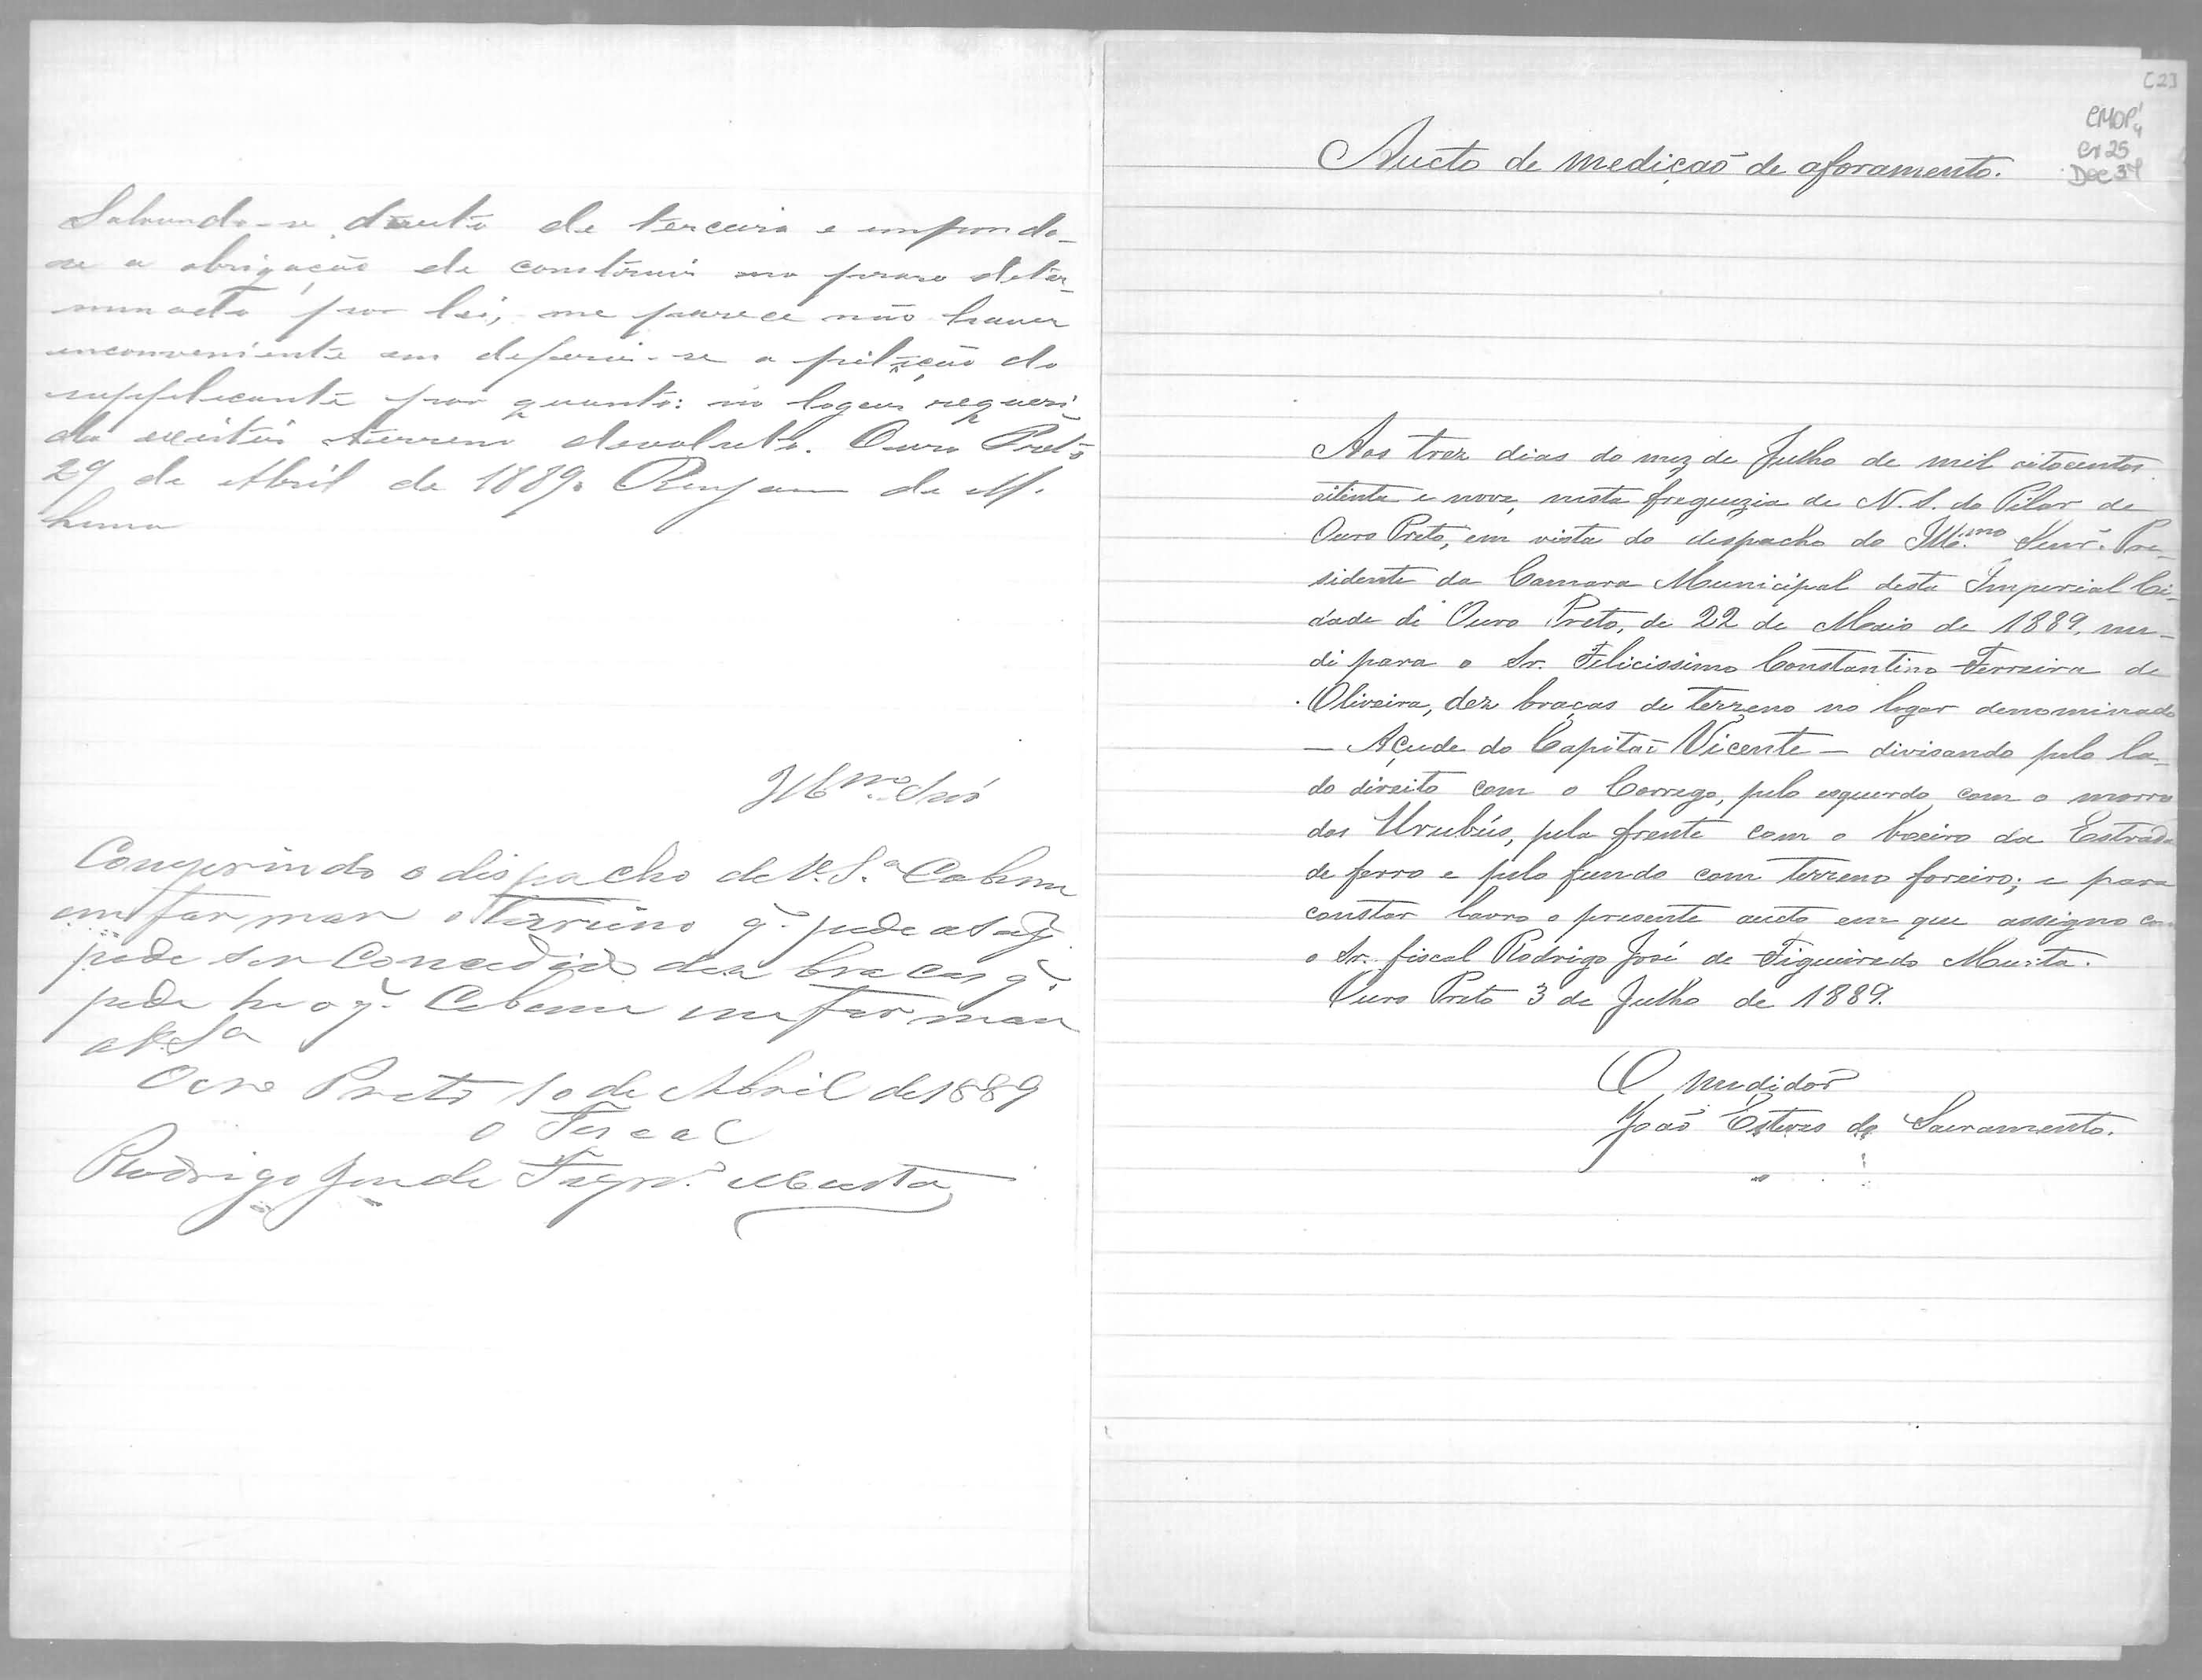 Salvando-se direito de terceiro e impondo-
se a obrigação de construir no praso deter-
minado por lei, me parece não haver
inconveniente em deferir-se a petição do
supplicante por quanto: no logar requeri-
do existir terreno devoluto. Ouro Preto
29 de Abril de 1889. Benjam de M.
Lima
Illmo. Snr
Comprindo o dispacho de V. S.a Cabeme
emformar o terreno q. pede o Sup.
pode ser Concedido dez bracas q.
pede he o q. Cabeme imformar
a V. Sa
Ouro Preto 10 de Abril de 1889
O Fiscal
Rodrigo Jose de Figrdo. Murta
[2]
CMOP
Cx 25
Doc 34
Aucto de medição de aforamento.
Aos trez dias do mez de Julho de mil oitocentos
oitenta e nove, nesta freguezia de N. S. do Pilar de
Ouro Preto, em vista do despacho do Illo.mo Senr. Pre-
sidente da Camara Municipal desta Imperial Ci-
dade de Ouro Preto, de 22 de Maio de 1889, me-
di para o Sr. Felicissimo Constantino Ferreira de
Oliveira, dez braças de terreno no logar denominado
— Açude do Capitão Vicente — divisando pelo la-
do direito com o Corrego, pelo esquerdo com o morro
dos Urubús, pela frente com o boeiro da Estrada
de ferro e pelo fundo com terreno foreiro; e para
constar lavro o presente aucto em que assigno com
o Sr. fiscal Rodrigo José de Figueiredo Murta.
Ouro Preto 3 de Julho de 1889.
O medidor
João Esteves do Sacramento.